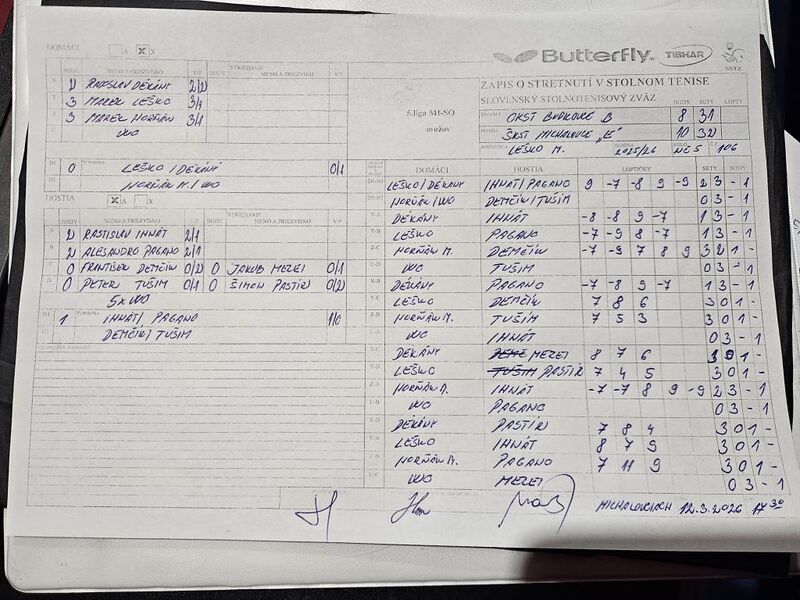 DOMÁCI A X X
Butterfly TIBHAR SSTZ
BODY MENO A PRIEZVISKO V/P BODY STRIEDANIE MENO A PRIEZVISKO V/P
2 RADOSLAV DÉKÁNY 2/2
3 MAREK LEŠKO 3/1
3 MAREK HORŇÁK 3/1
WO
0 LEŠKO/DÉKÁNY 0/1
HORŇÁK M./WO
HOSTIA X
BODY MENO A PRIEZVISKO V/P BODY STRIEDANIE MENO A PRIEZVISKO V/P
2 RASTISLAV IHNÁT 2/1
2 ALESANDRO PAGANO 2/1
0 FRANTIŠEK DEMČÍK 0/2 0 JAKUB MEZEI 0/1
0 PETER TUŠIM 0/1 0 ŠIMON PASTÍR 0/2
5x WO
1 IHNÁT/PAGANO 1/0
DEMČÍK/TUŠIM
ZÁPIS O STRETNUTÍ V STOLNOM TENISE
SLOVENSKÝ STOLNOTENISOVÝ ZVÄZ
5.liga MI-SO
mužov
BODY SETY LOPTY
OKST BUDKOVCE B 8 31
ŠKST MICHALOVCE "E" 10 32
LEŠKO M. 2025/26 NČ5 106
DOMÁCI HOSTIA LOPTIČKY SETY BODY
LEŠKO/DÉKÁNY IHNÁT/PAGANO 9 -7 -8 9 -9 2 3 - 1
HORŇÁK/WO DEMČÍK/TUŠIM 0 3 - 1
X-A DÉKÁNY IHNÁT -8 -8 9 -7 1 3 - 1
Y-B LEŠKO PAGANO -7 -9 8 -7 1 3 - 1
Z-C HORŇÁK M. DEMČÍK -7 -9 7 8 9 3 2 1 -
U-D WO TUŠIM 0 3 - 1
X-B DÉKÁNY PAGANO -7 -8 9 -7 1 3 - 1
Y-C LEŠKO DEMČÍK 7 8 6 3 0 1 -
Z-D HORŇÁK M. TUŠIM 7 5 3 3 0 1 -
U-A WO IHNÁT 0 3 - 1
X-C DÉKÁNY MEZEI 8 7 6 3 0 1 -
Y-D LEŠKO TUŠIM PASTÍR 7 4 5 3 0 1 -
Z-A HORŇÁK M. IHNÁT -7 -7 8 9 -9 2 3 - 1
U-B WO PAGANO 0 3 - 1
X-D DÉKÁNY PASTÍR 7 8 4 3 0 1 -
Y-A LEŠKO IHNÁT 8 7 9 3 0 1 -
Z-B HORŇÁK M. PAGANO 7 11 9 3 0 1 -
U-C WO MEZEI 0 3 - 1
MICHALOVCIACH 12.3.2026 17 30